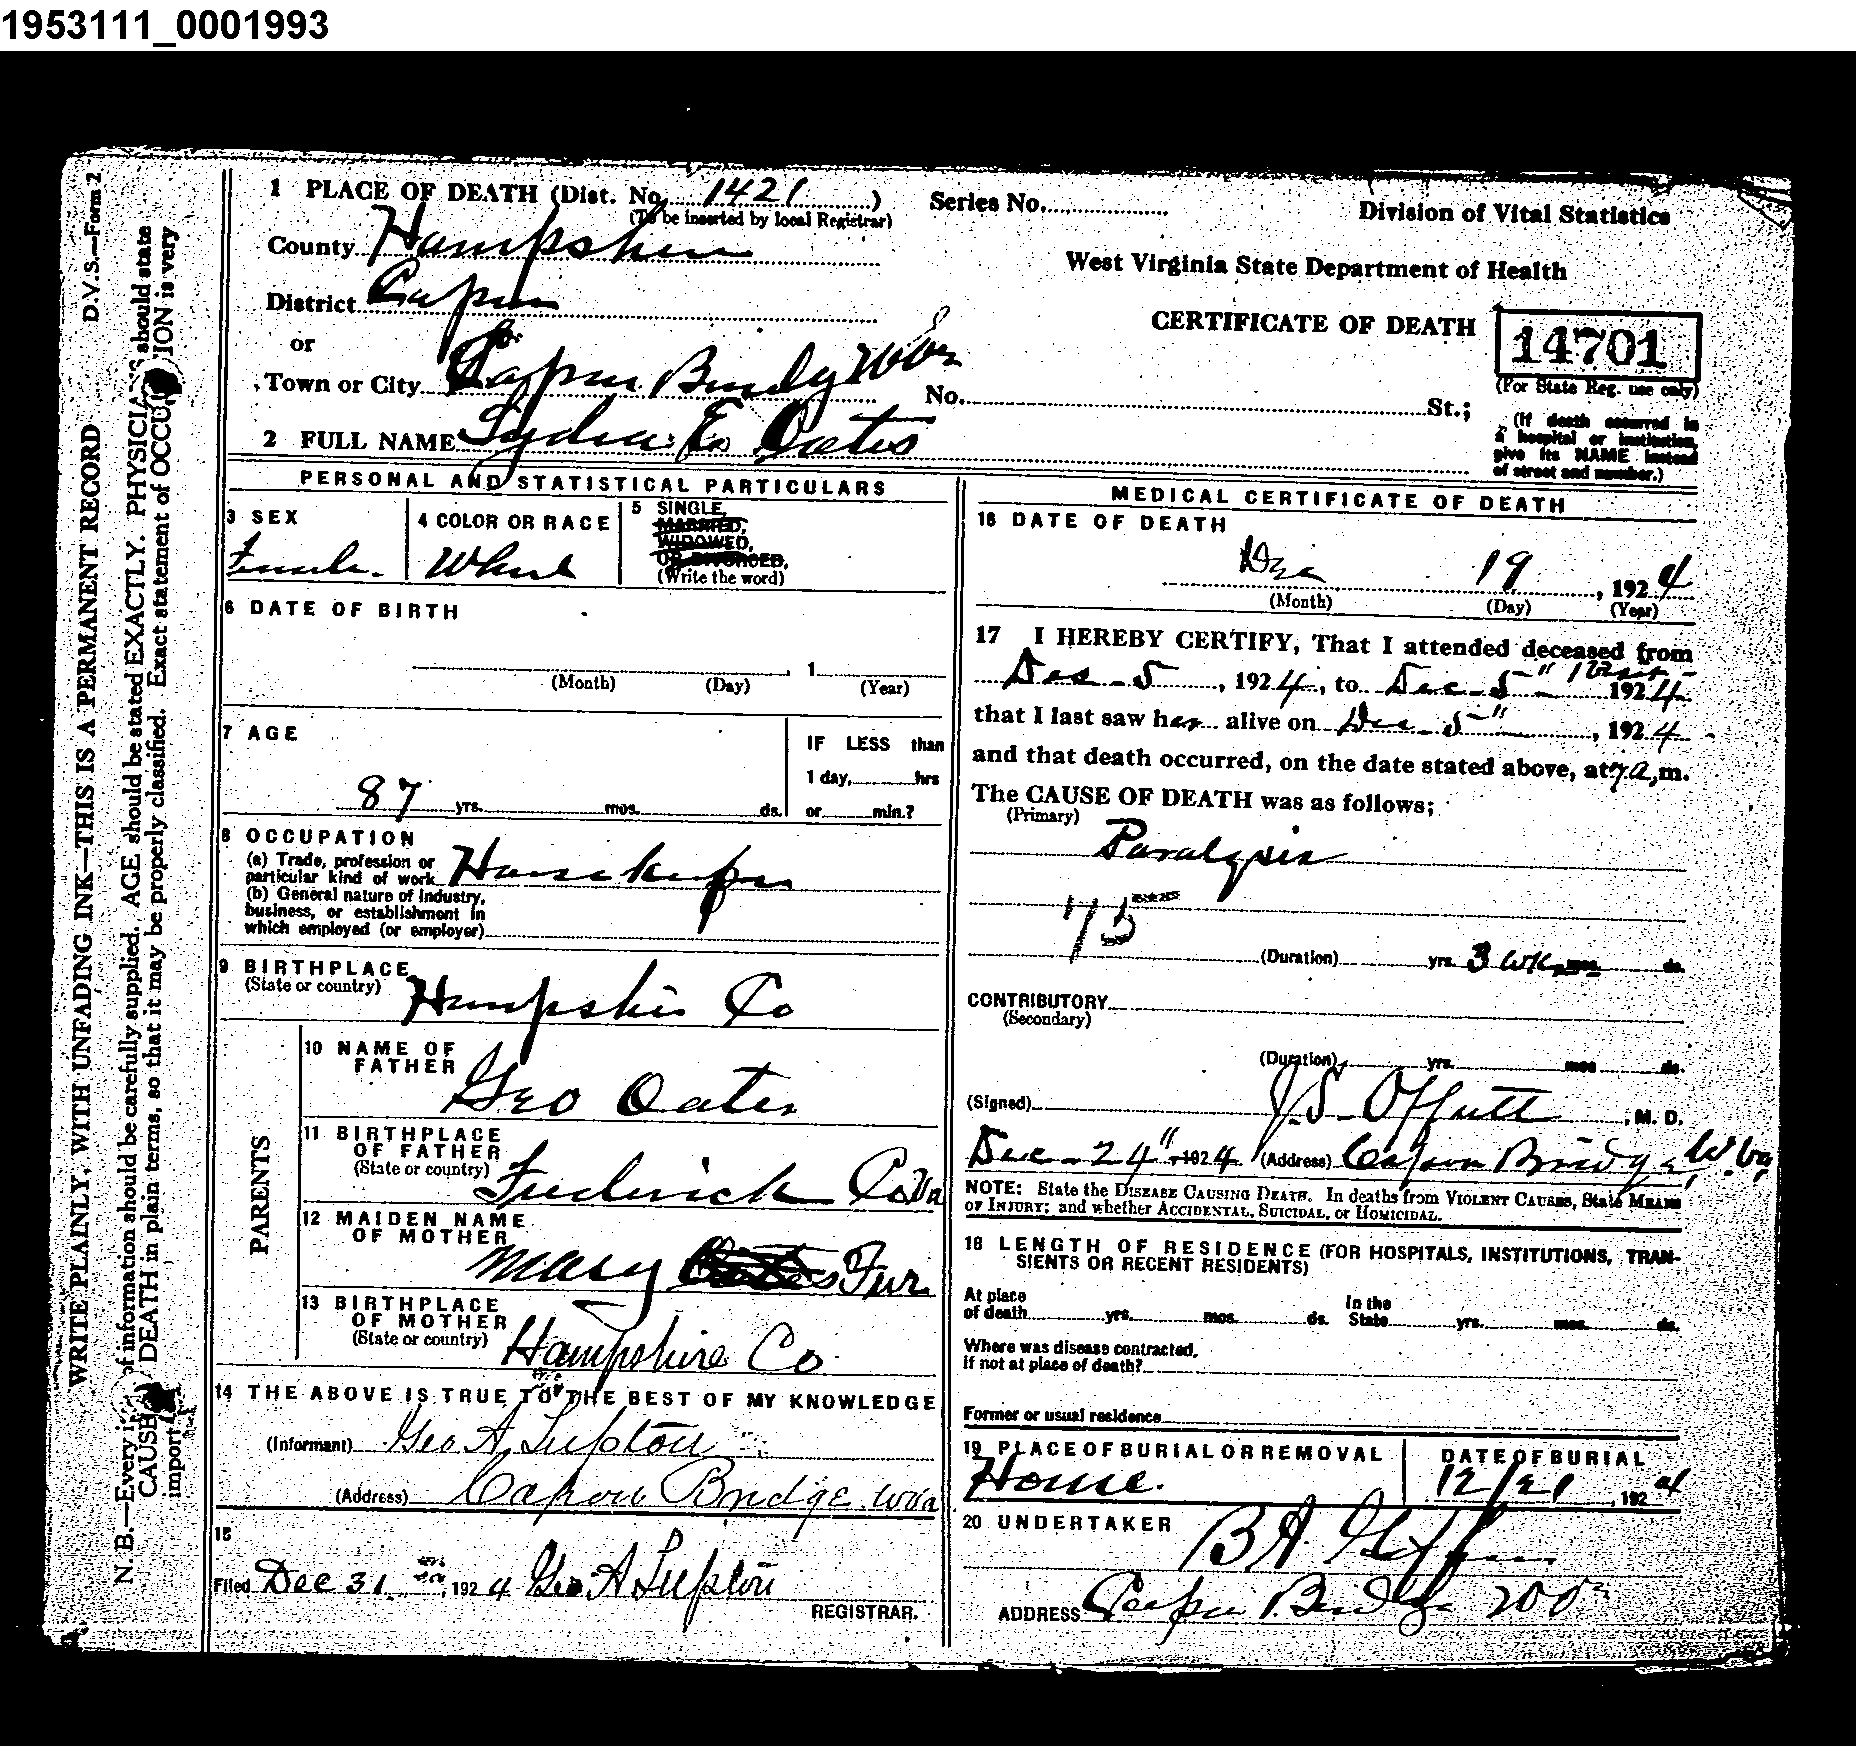 1953111_0001993
D.V.S.—Form 2
WRITE PLAINLY, WITH UNFADING INK—THIS IS A PERMANENT RECORD
N. B.—Every of information should be carefully supplied. AGE should be stated EXACTLY. PHYSICIANS should state
CAUSE DEATH in plain terms, so that it may be properly classified. Exact statement of OCCU ION is very
import
1 PLACE OF DEATH (Dist. No. 1421 )
(To be inserted by local Registrar)
Series No.
Division of Vital Statistics
County Hampshire
West Virginia State Department of Health
District Capon
CERTIFICATE OF DEATH
14701
(For State Reg. use only)
or
Town or City Capon Bridge W Va
No. St.;
(If death occurred in
a hospital or institution,
give its NAME instead
of street and number.)
2 FULL NAME Lydia E. Oates
PERSONAL AND STATISTICAL PARTICULARS
3 SEX
Female
4 COLOR OR RACE
White
5 SINGLE,
MARRIED,
WIDOWED,
OR DIVORCED,
(Write the word)
6 DATE OF BIRTH
, 1
(Month) (Day) (Year)
7 AGE
87 yrs. mos. ds.
IF LESS than
1 day, hrs
or min.?
8 OCCUPATION
(a) Trade, profession or
particular kind of work Housekeeper
(b) General nature of industry,
business, or establishment in
which employed (or employer)
9 BIRTHPLACE
(State or country) Hampshire Co
PARENTS
10 NAME OF
FATHER
Geo Oates
11 BIRTHPLACE
OF FATHER
(State or country) Frederick Co Va
12 MAIDEN NAME
OF MOTHER
Mary Oates Fur
13 BIRTHPLACE
OF MOTHER
(State or country) Hampshire Co
14 THE ABOVE IS TRUE TO THE BEST OF MY KNOWLEDGE
(Informant) Geo A Lupton
(Address) Capon Bridge W Va
15
Filed Dec 31, 1924 Geo A Lupton
REGISTRAR.
MEDICAL CERTIFICATE OF DEATH
16 DATE OF DEATH
Dec 19, 1924
(Month) (Day) (Year)
17 I HEREBY CERTIFY, That I attended deceased from
Dec - 5, 1924, to Dec - 5" 1924
that I last saw her alive on Dec - 5", 1924
and that death occurred, on the date stated above, at 7 a, m.
The CAUSE OF DEATH was as follows;
(Primary)
Paralysis
75
(Duration) yrs. 3 wk. mos. ds.
CONTRIBUTORY
(Secondary)
(Duration) yrs. mos. ds.
(Signed) J. S. Offutt, M. D.
Dec - 24", 1924 (Address) Capon Bridge, W. Va
NOTE: State the DISEASE CAUSING DEATH. In deaths from VIOLENT CAUSES, State MEANS
OF INJURY; and whether ACCIDENTAL, SUICIDAL, or HOMICIDAL.
18 LENGTH OF RESIDENCE (FOR HOSPITALS, INSTITUTIONS, TRAN-
SIENTS OR RECENT RESIDENTS)
At place
of death yrs. mos. ds.
In the
State yrs. mos. ds.
Where was disease contracted,
if not at place of death?
Former or usual residence
19 PLACE OF BURIAL OR REMOVAL
Home.
DATE OF BURIAL
12/21, 1924
20 UNDERTAKER B A
ADDRESS Capon Bridge W Va